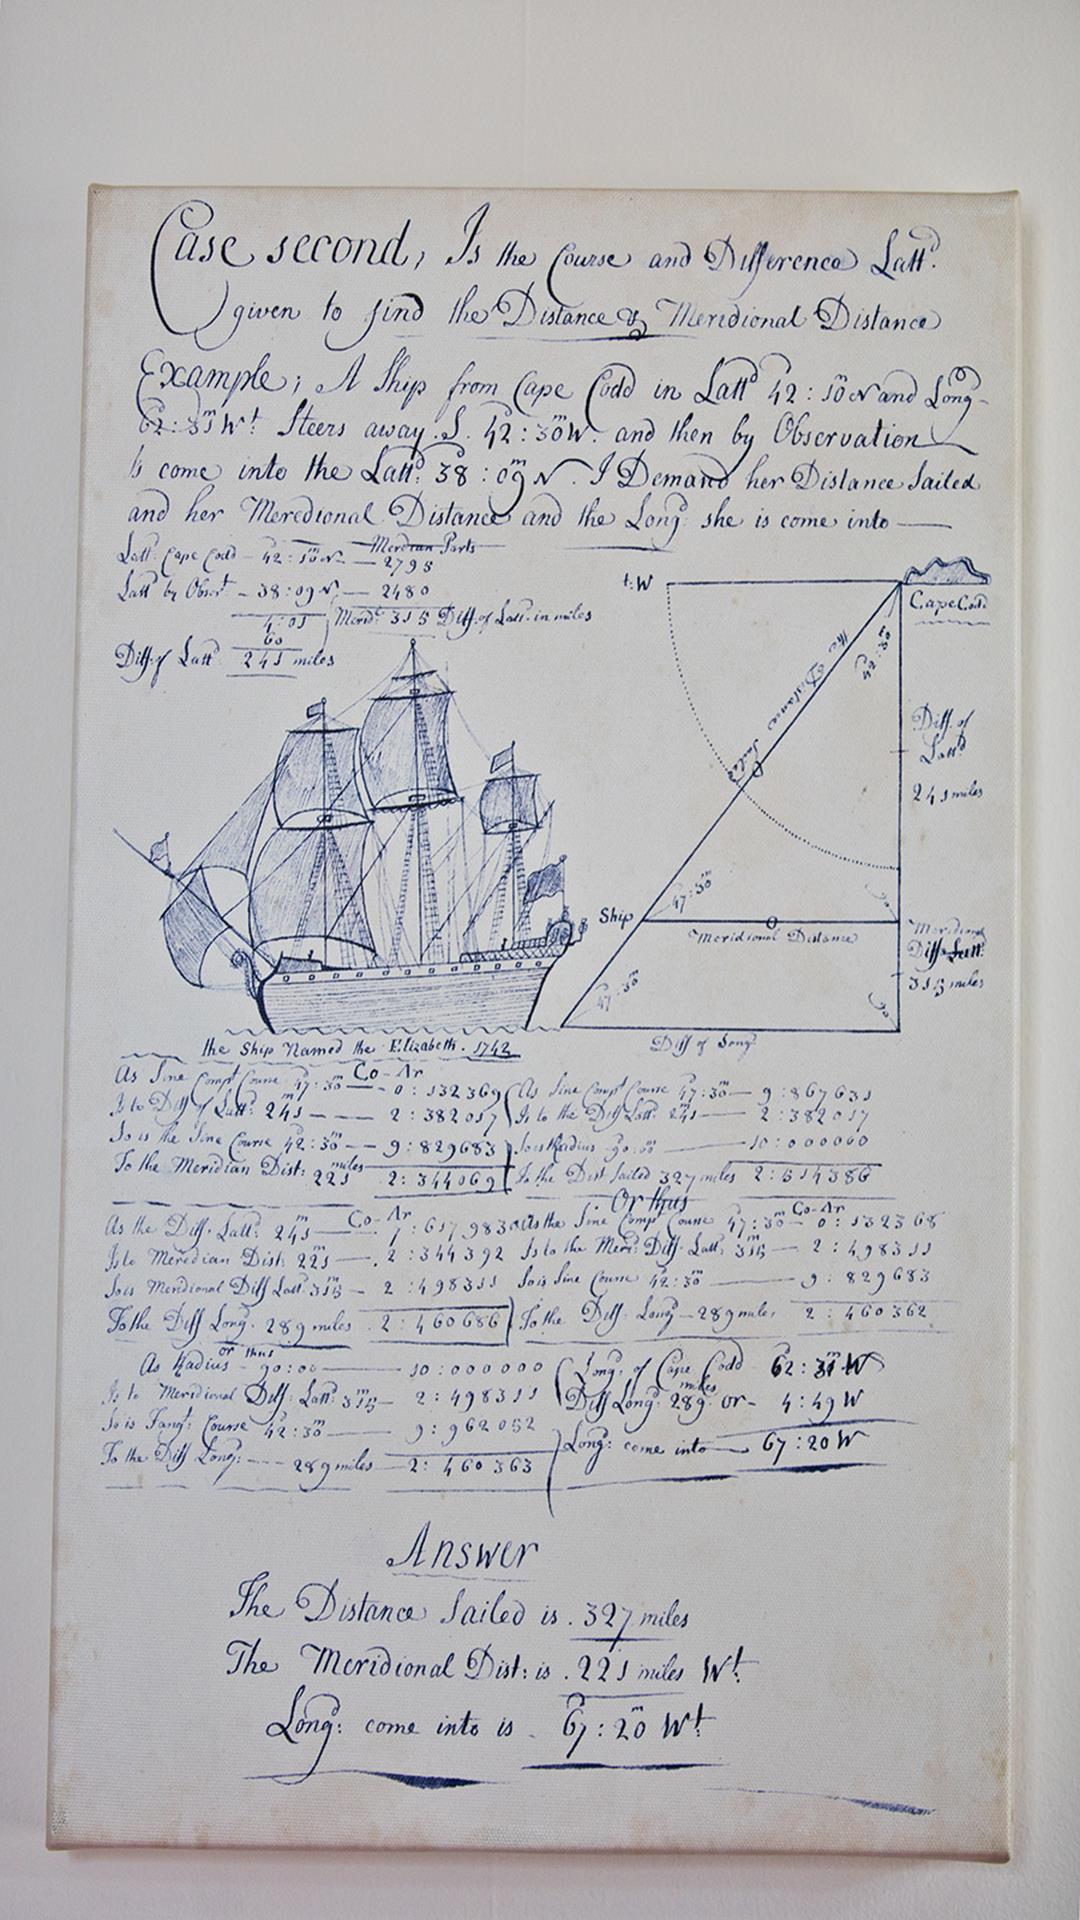 Case second, Is the Course and Difference Lattd.
given to find the Distance & Meridional Distance
Example; A Ship from Cape Codd in Lattd 42 : 10 N and Long-
62 : 31m Wt Steers away S. 42 : 30m W. and then by Observation
Is come into the Lattd: 38 : 09m N. I Demand her Distance Sailed
and her Meredional Distance and the Longd: she is come into —
Lattd: Cape Codd - 42 : 10m N — Merdian Parts 2795
Lattd by Obsert - 38 : 09 N — 2480
4 : 01 Merid: 315 Diff. of Latt. in miles
60
Diff. of Lattd 241 miles
t: W
Cape Codd
42 : 30
the Distance Sailed
Diff. of
Lattd
241 miles
47 : 30
Ship
Meridional Distance
Meridional
Diff Latt:
315 miles
47 : 30
Diff of Longd
the Ship Named the Elizabeth. 1742
As Sine Compt Course 47 : 30m — Co-Ar 0 : 132369
Is to Diff of Lattd: 241m - — 2 : 382017
So is the Sine Course 42 : 30m — 9 : 829683
To the Meridian Dist: 221 miles 2 : 344069
As Sine Compt Course 47 : 30m — 9 : 867631
Is to the Diff Lattd: 241m — 2 : 382017
So is Radius 90 : 00 — 10 : 000000
To the Dist Sailed 327 miles 2 : 514386
Or thus
As the Diff. Lattd: 241m — Co-Ar 7 : 617983
Is to Meredian Dist: 221m — 2 : 344392
So is Meridional Diff Latt: 315m — 2 : 498311
To the Diff Long. 289 miles 2 : 460686
As the Sine Compt Course 47 : 30m — Co-Ar 0 : 132368
Is to the Merd: Diff. Latt: 315m — 2 : 498311
So is Sine Course 42 : 30m — 9 : 829683
To the Diff: Long — 289 miles 2 : 460362
or thus
As Radius - 90 : 00 — 10 : 000000
Is to Meridional Diff: Lattd: 315m — 2 : 498311
So is Tangt: Course 42 : 30m — 9 : 962052
To the Diff Longd: --- 289 miles — 2 : 460363
Long: of Cape Codd 62 : 31 W
Diff Long: 289 miles or - 4 : 49 W
Longd: come into — 67 : 20 W
Answer
The Distance Sailed is . 327 miles
The Meridional Dist: is . 221 miles Wt:
Longd: come into is - 67 : 20m Wt